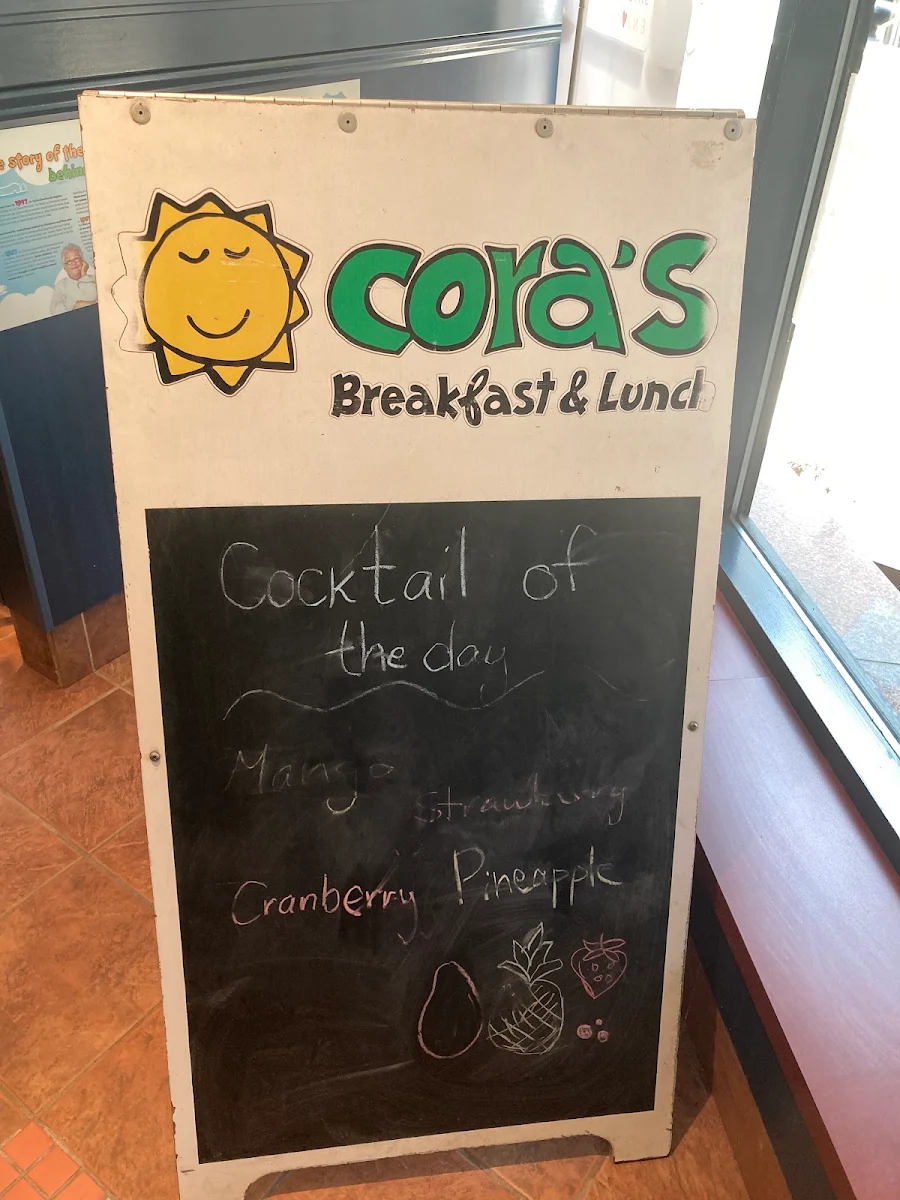 e story of the
behin
1987
cora's
Breakfast & Lunch
Cocktail of
the day
Mango
Strawberry
Cranberry Pineapple